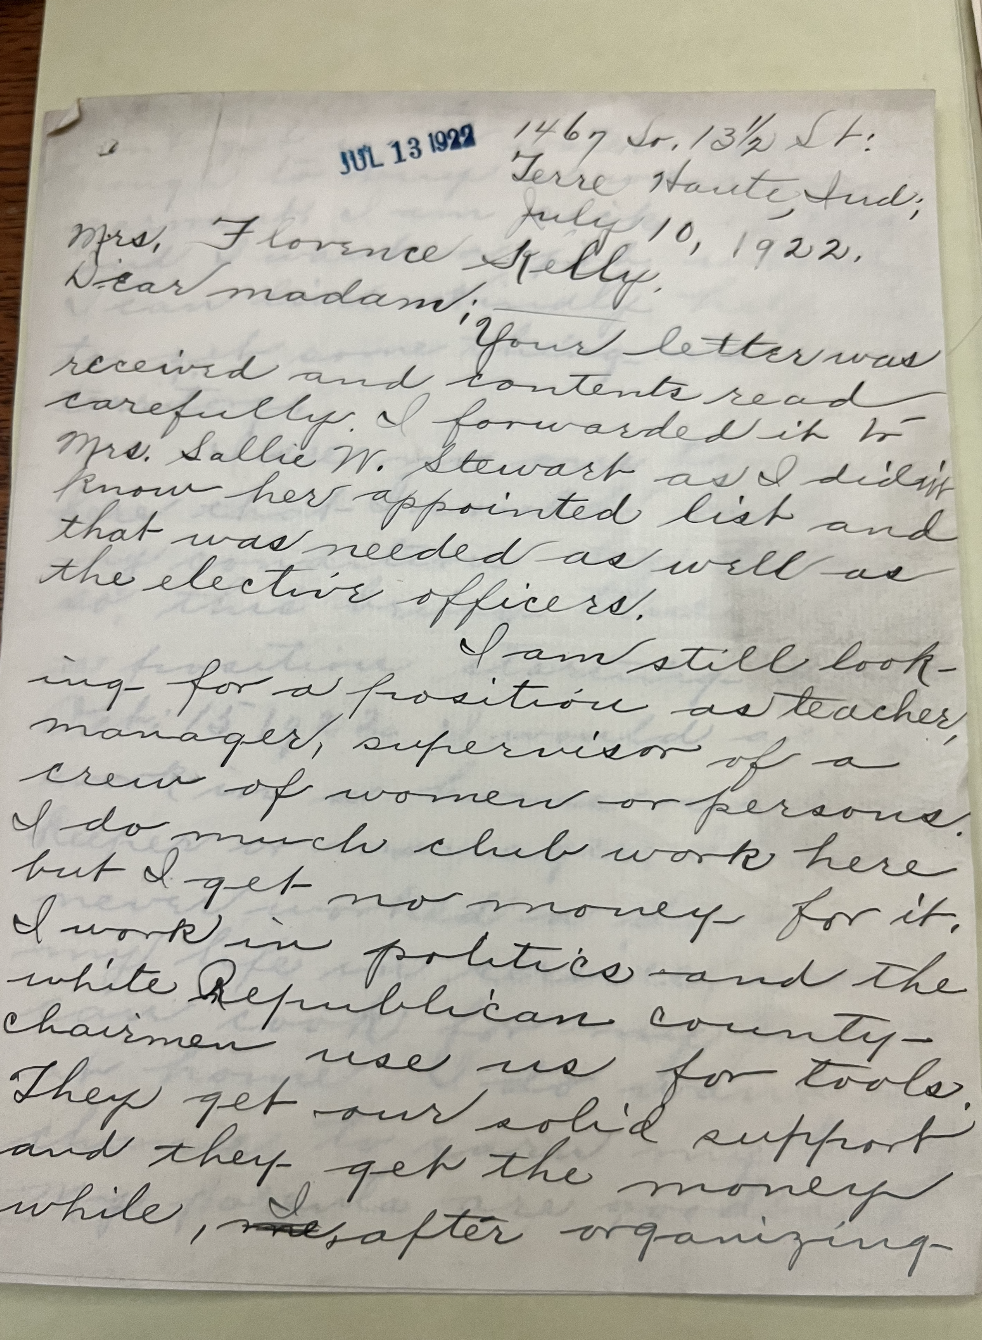 JUL 13 1922
1467 So. 13½ St:
Terre Haute, Ind;
July 10, 1922.
Mrs. Florence Kelly.
Dear madam;
Your letter was
received and contents read
carefully. I forwarded it to
Mrs. Sallie W. Stewart as I didn't
know her appointed list and
that was needed as well as
the elective officers.
I am still look-
ing for a position as teacher,
manager, supervisor of a
crew of women or persons.
I do much club work here
but I get no money for it.
I work in politics and the
white Republican county-
chairmen use us for tools.
They get our solid support
and they get the money
while, me, I after organizing